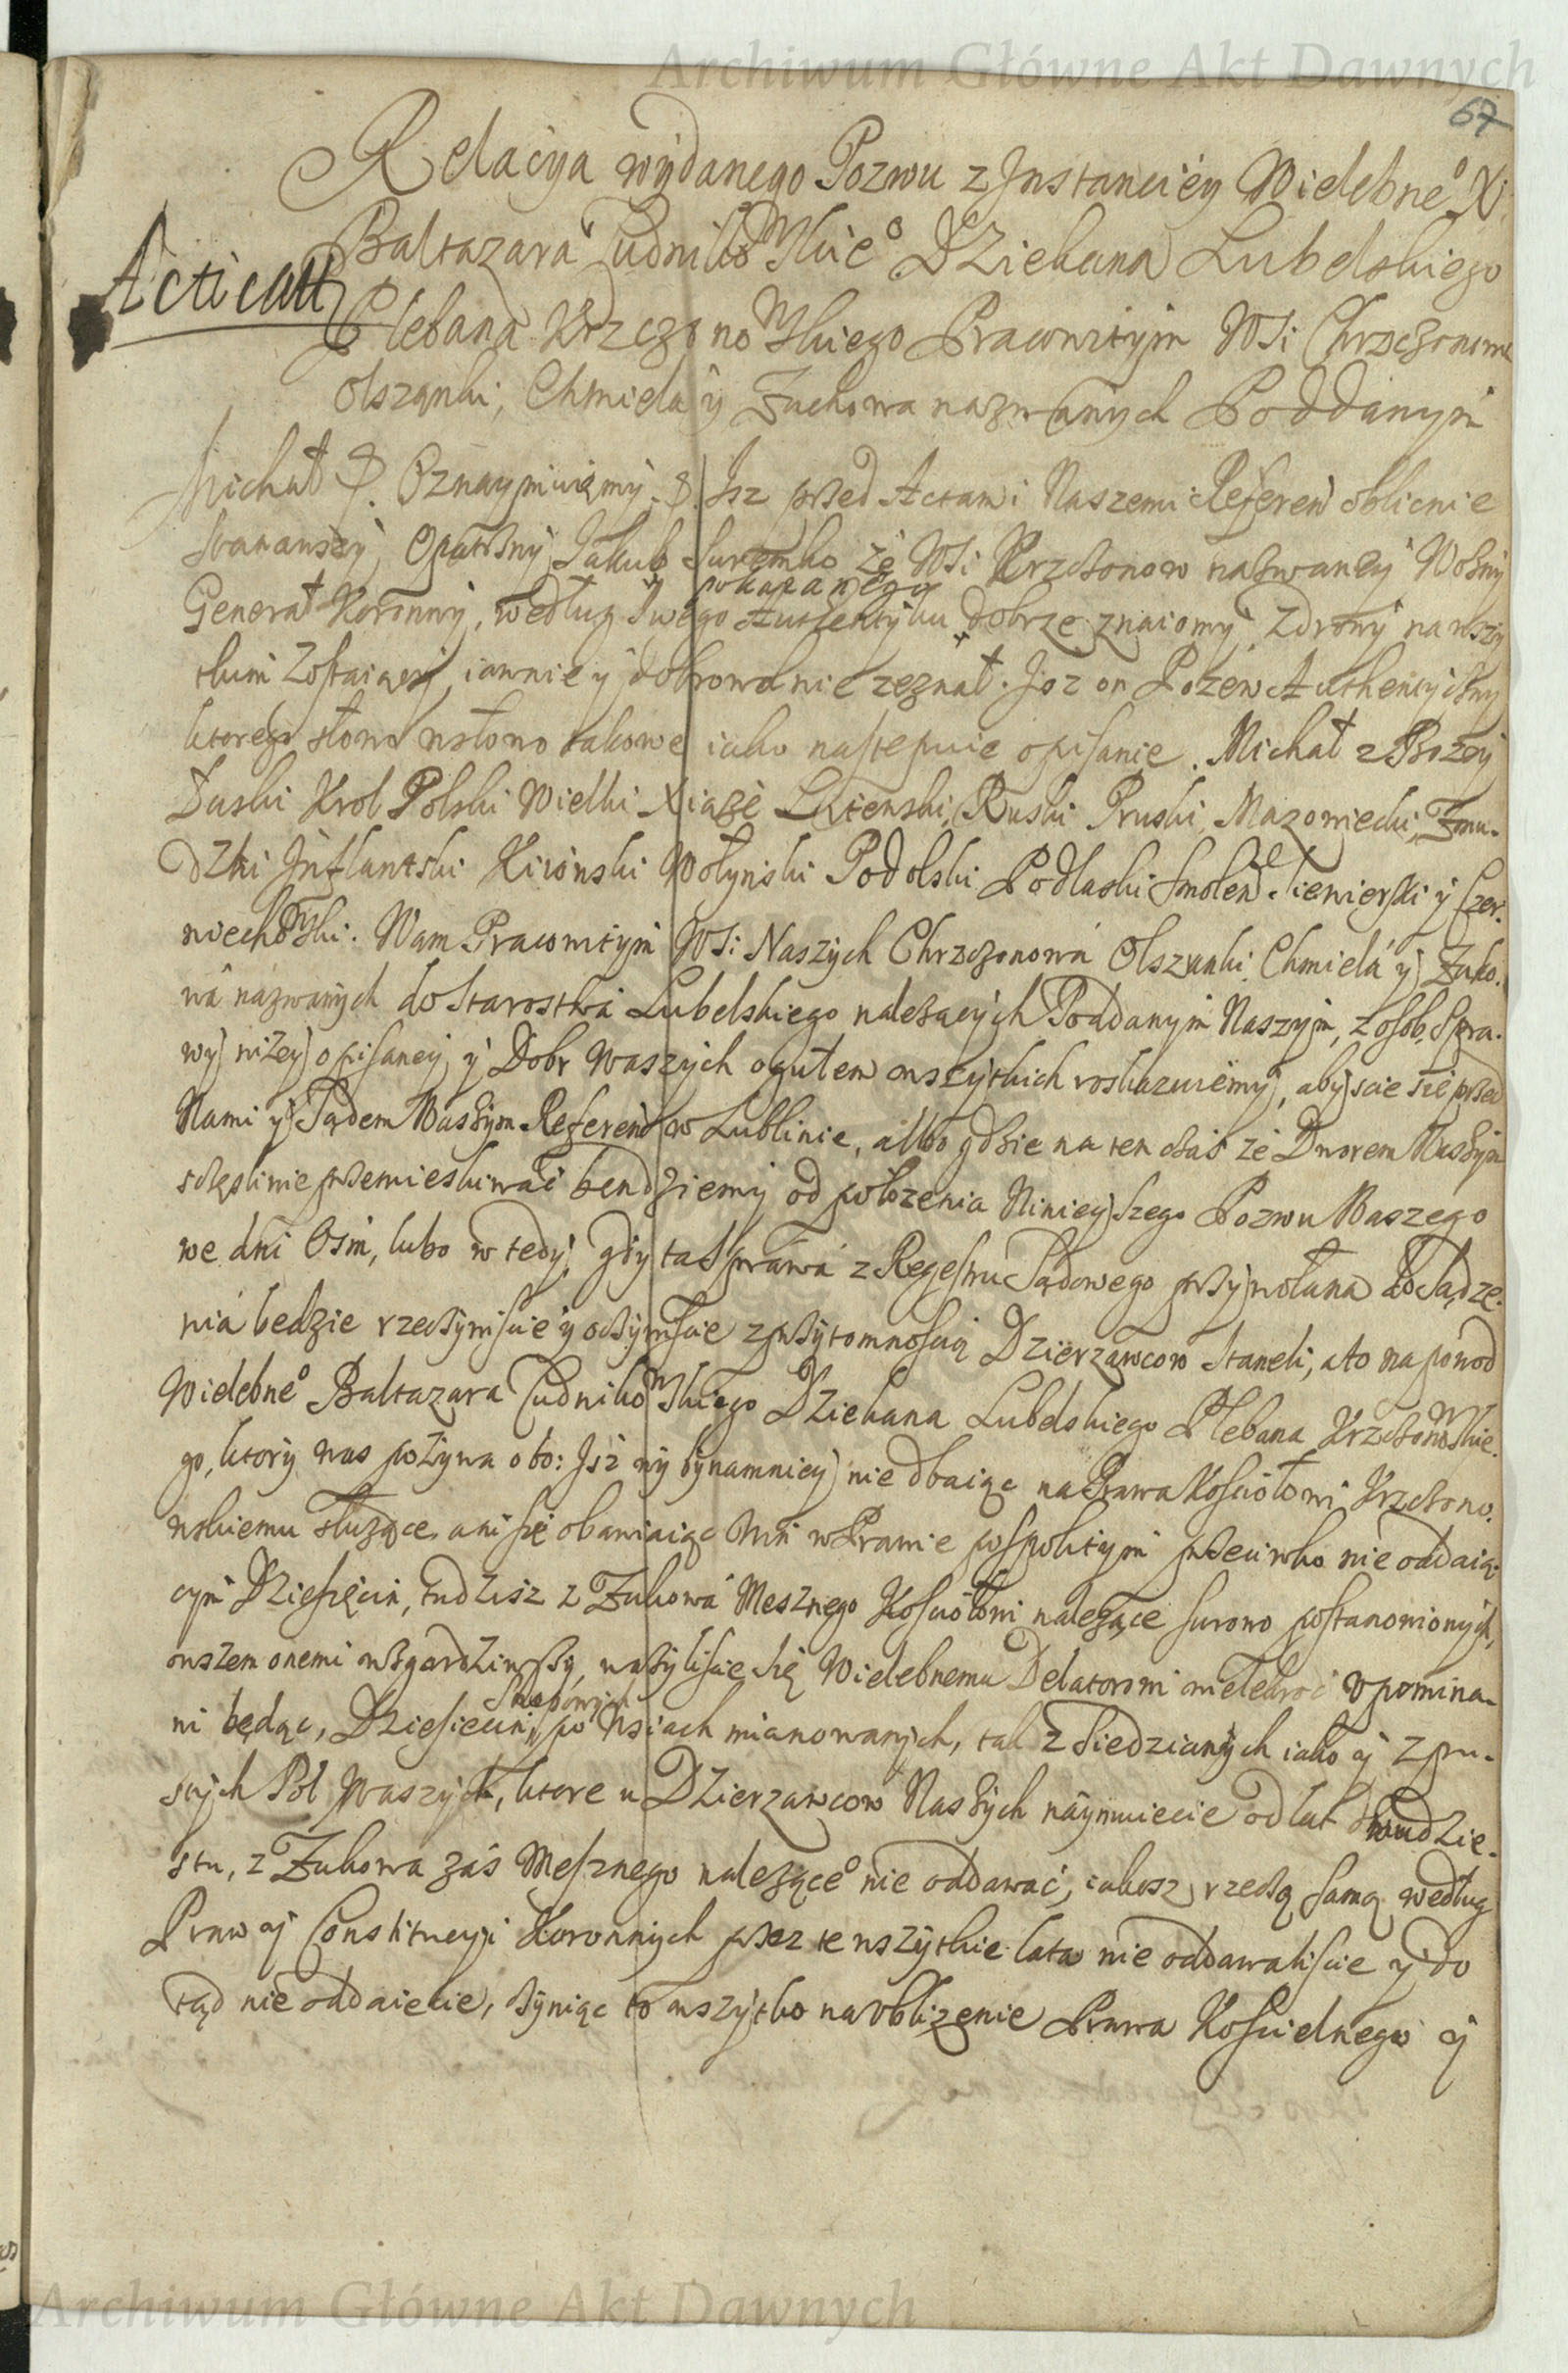 Archiwum Główne Akt Dawnych
67
Relacÿa wÿdanego Pozwu z Jnstancieÿ Wielebneº X:
Baltazara CudnikowSkieº DZiekana Lubelskiego
Acticatt
Plebana KrzczonowSkiego Pracowitÿm WSi Chrzczonowa
Olszanki, Chmiela ÿ Zukowa nazwanÿch Poddanÿm
Michał &. Oznaÿmuiemÿ &. Jsz przed Actami Naszemi Referen oblicnie
stanawszÿ, Opatrznÿ Jakub Suremko ze WSi Krzczonow nazwaneÿ Woznÿ
pokazanego
Generał Koronnÿ, według Swego Authentÿku dobrze znaiomÿ Zdrowÿ na wszÿ
tkim Zostaiącÿ, iawnie ÿ dobrowolnie zeznał. Jsz on Pozew Authentÿcznÿ
ktorego słowo wsłowo takowe iako nastempuie opisanie. Michał z Bozeÿ
Łaski Krol Polski Wielki Xiąże Litewski, Ruski Pruski, Mazowiecki, Zmu-
dzki Jnflantski Kiiowski Wołÿnski Podolski Podlaski Smolen Siewierski ÿ Czer-
niechowSki. Wam Pracowitÿm WSi Naszÿch Chrzczonowa Olszanki Chmiela ÿ Zuko-
wa nazwanÿch do Starostwa Lubelskiego nalezacÿch Poddanÿm Naszÿm, z osob, Spra-
wÿ nizeÿ opisaneÿ, ÿ Dobr Waszÿch ogułem wszÿtkich roskazuiemÿ, abÿscie sie przed
Nami ÿ Sądem Naszÿm Referen w Lublinie, albo gdzie na ten czas ze Dworem Naszÿm
sczęsliwie przemieszkiwać bendziemÿ od połozenia Ninieÿszego Pozwu Naszego
we dni Osm, lubo w tedÿ, gdÿ ta Sprawa z Regestru Sądowego przÿwołana do Sądze-
nia bedzie rzeczÿwiscie ÿ oczÿwiscie z przÿtomnoscią Dzierzawcow Staneli, a to na powod
Wielebneº Baltazara CudnikowSkiego DZiekana Lubelskiego Plebana KrzczonowSkie-
go, ktorÿ was pozÿwa o to: Jsz wÿ bÿnamnieÿ nie dbaiąc na Prawa Kosciołowi Krzczono-
wskiemu słuzące, ani się obawiaiąc Win w Prawie pospolitÿm przeciwko nie oddaią-
cÿm Dziesięcin, tudzisz z Zukowa Mesznego Kosciołowi nalezące surowo postanowionÿch,
owszem onemi wzgardziwszÿ, wazÿliscie się Wielebnemu Delatorowi wielekroć Vpomina-
Snopowÿch
ni będąc, Dziesiecin, po Wsiach mianowanÿch, tak z Siedzianÿch iako ÿ z pu-
stÿch Pol Waszÿch, ktore u Dzierzawcow Naszÿch naÿmuiecie od lat dwudzie-
stu, z Zukowa zaś Mesznego naleząceº nie oddawać, iakosz rzeczą samą według
Praw ÿ Constitucÿi Koronnÿch przez te wszÿtkie lata nie oddawaliscie ÿ do
tąd nie oddaiecie, czÿniąc to wszÿtko na Vbliżenie Prawa Koscielnego ÿ
Archiwum Główne Akt Dawnych